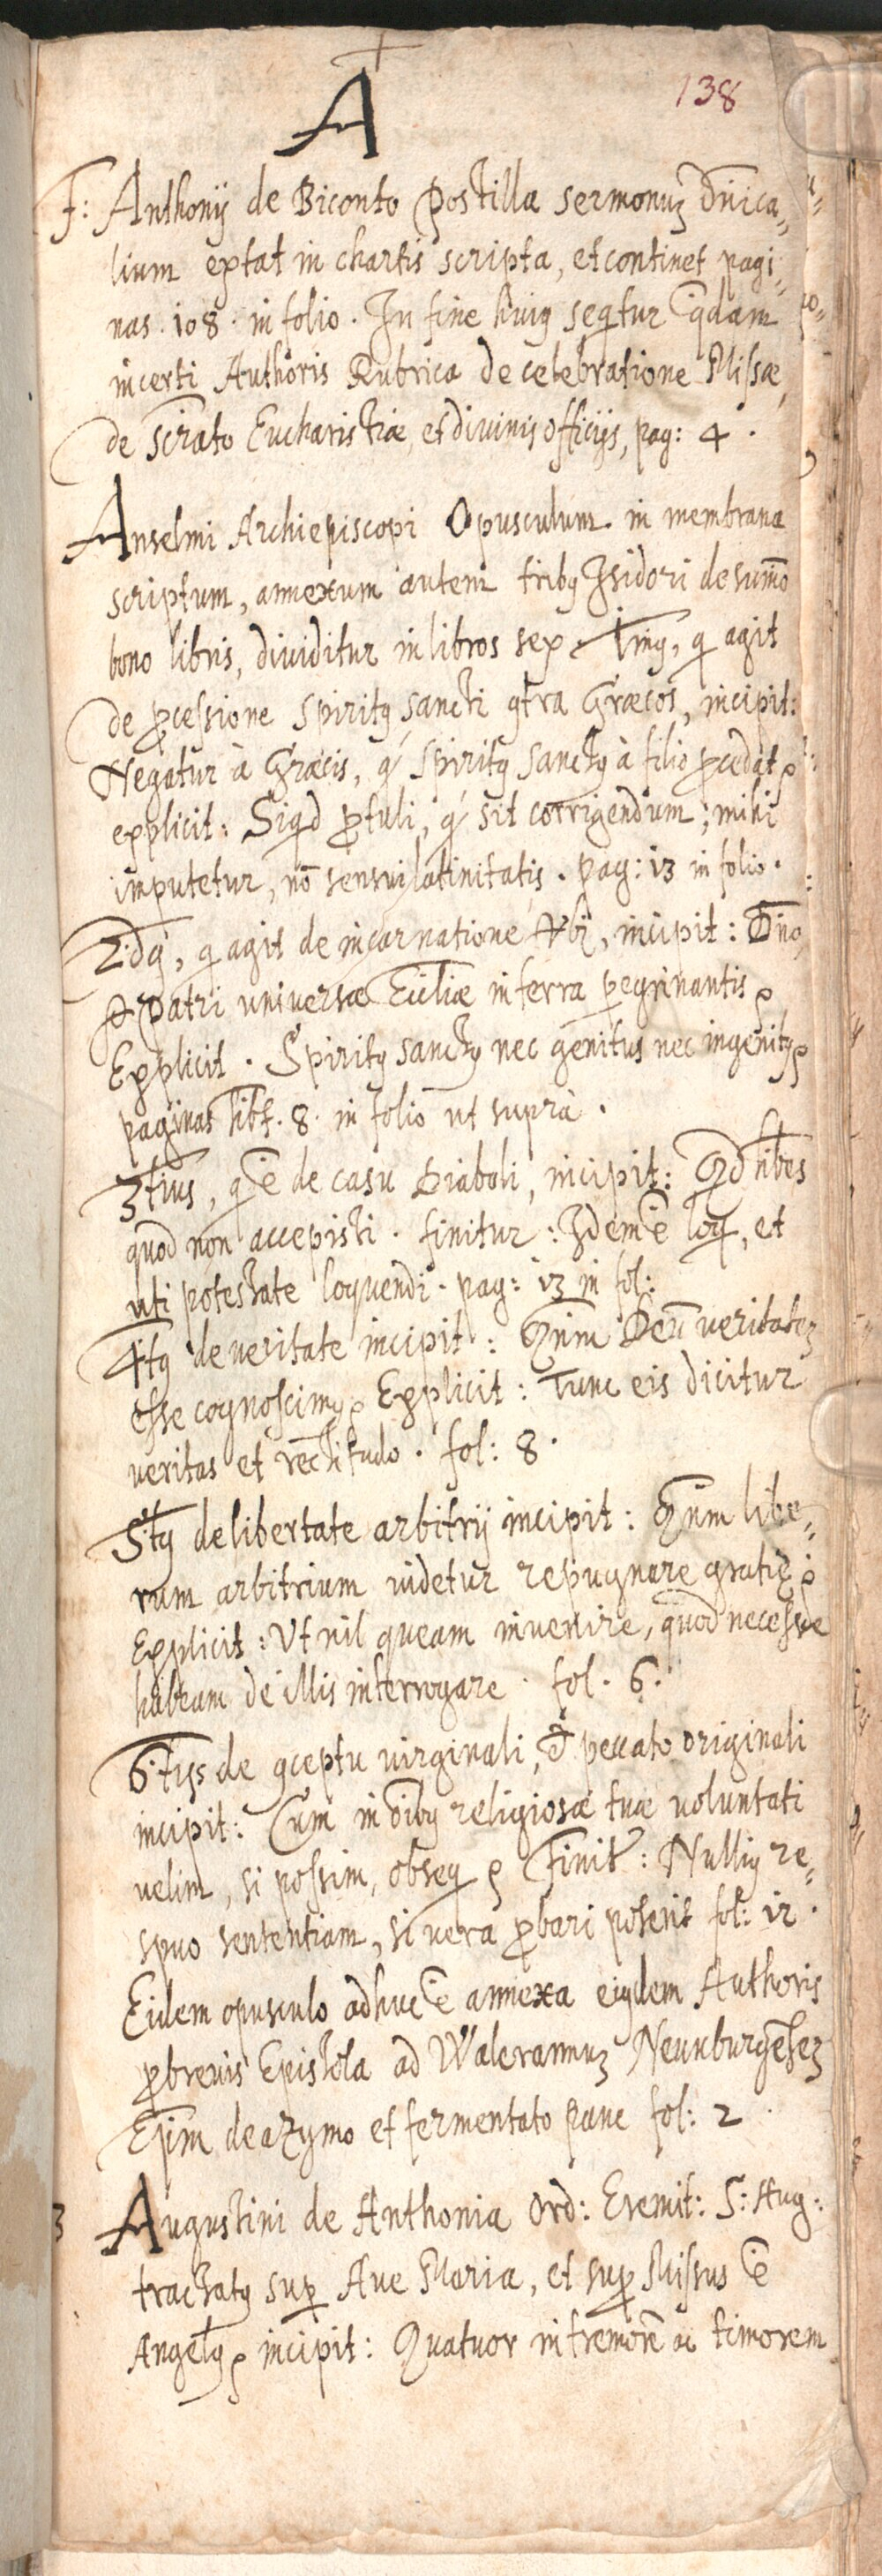 A
138
F: Anthonij de Biconto Postilla sermonuꝫ Dn̄ica„
lium extat in chartis scripta, et continet pagi„
nas. 108. in folio. In fine huiꝯ seqͥtur qͥdam
incerti Authoris Rubrica de celebratione Missæ,
de Sc̄rāto Eucharistiæ, et diuinis officijs, pag: 4.
Anselmi Archiepiscopi Opusculum. in membrana
scriptum, annexum autem tribꝯ Isidori de sum̄o
bono libris, diuiditur in libros sex. Im̄ꝯ, qͥ agit
de ꝓcessione Spiritꝯ sancti ꝯtra Græcos, incipit:
Negatur à Græcis, qͩ Spiritꝯ sanctꝯ à filio ꝓcedat ꝑ
explicit: Siqͥd ꝓtuli, qͩ sit corrigendum; mihi
imputetur, nō sensui latinitatis. pag: 13 in folio.
2.dꝯ, qͥ agit de incarnatione Vbi, incipit: Dn̄o
& Patri uniuersæ Ecc̄liæ in terra ꝑegrinantis ꝑ
Explicit. Spiritꝯ sanctꝯ nec genitus nec ingenitꝯ ꝑ
paginas hībt. 8. in folio ut suprà.
3tius, qͥ ē de casu Diaboli, incipit: Qd hības
quod non accepisti. finitur: Idem ē loqͥ, et
uti potestate loquendi. pag: 13 in fol:
4tꝯ de veritate incipit: Qn̄m Deū veritateꝫ
esse cognoscimꝯ ꝑ Explicit: Tunc eis dicitur
veritas et rectitudo. fol: 8.
5.tꝯ de libertate arbitrij incipit: Qn̄m libe„
rum arbitrium uidetur repugnare gratię ꝑ
Explicit: Ut nil queam inuenire, quod necesse
habeam de illis interrogare. fol. 6.
6.tꝯs de ꝯceptu uirginali, & peccato originali
incipit: Cum in oībꝯ religiosæ tuæ uoluntati
uelim, si possim, obseqͥ ꝑ Finitᷣ: Nulliꝯ re„
spuo sententiam, si uera ꝓbari poterit fol: 12.
Eidem opusculo adhuc ē annexa eiꝯdem Authoris
ꝓbreuis Epistola ad Waleramnuꝫ Neunburgēseꝫ
Ep̄m de azymo et fermentato pane fol: 2.
3 Augustini de Anthonia Ord: Eremit: S: Aug:
tractatꝯ suꝑ Aue Maria, et suꝑ Missus ē
Angelꝯ ꝑ incipit: Quatuor in tremorē ac timorem